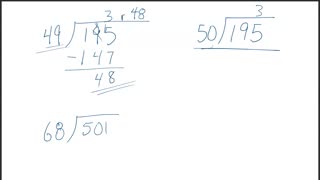 3 r 48
49)195
-147
48
3
50)195
68)501